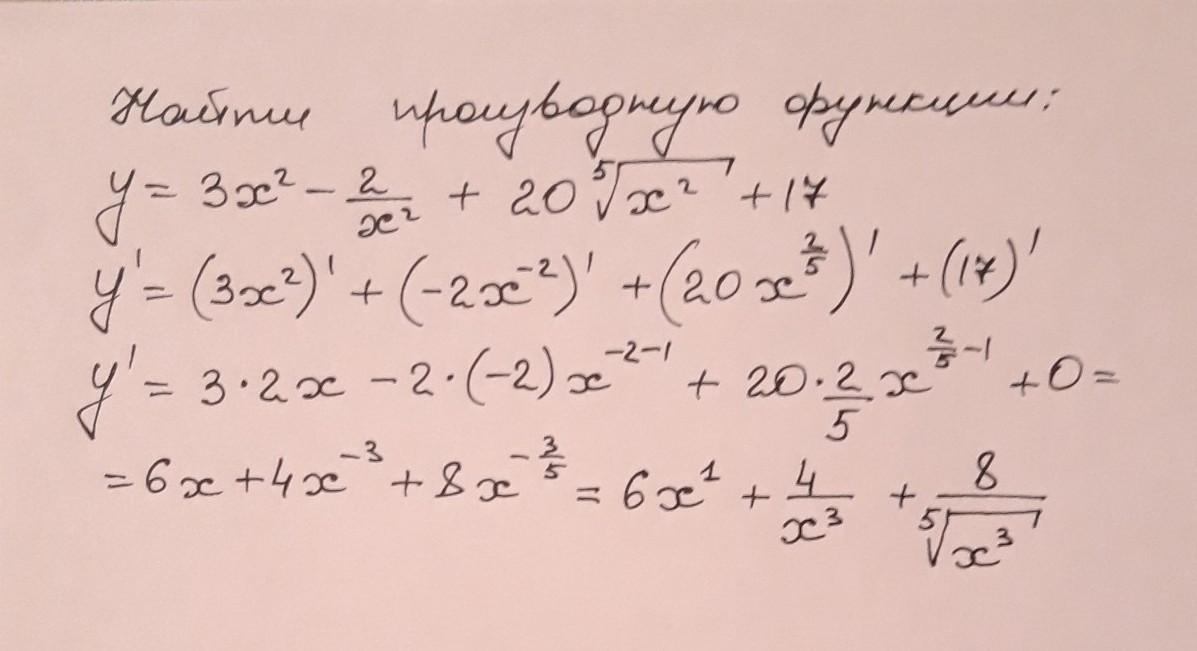 Найти производную функции:
y = 3x² - 2/x² + 20 ⁵√x² + 17
y' = (3x²)' + (-2x⁻²)' + (20x^(2/5))' + (17)'
y' = 3·2x - 2·(-2)x^(-2-1) + 20·2/5 x^(2/5-1) + 0 =
= 6x + 4x⁻³ + 8x^(-3/5) = 6x¹ + 4/x³ + 8/⁵√x³